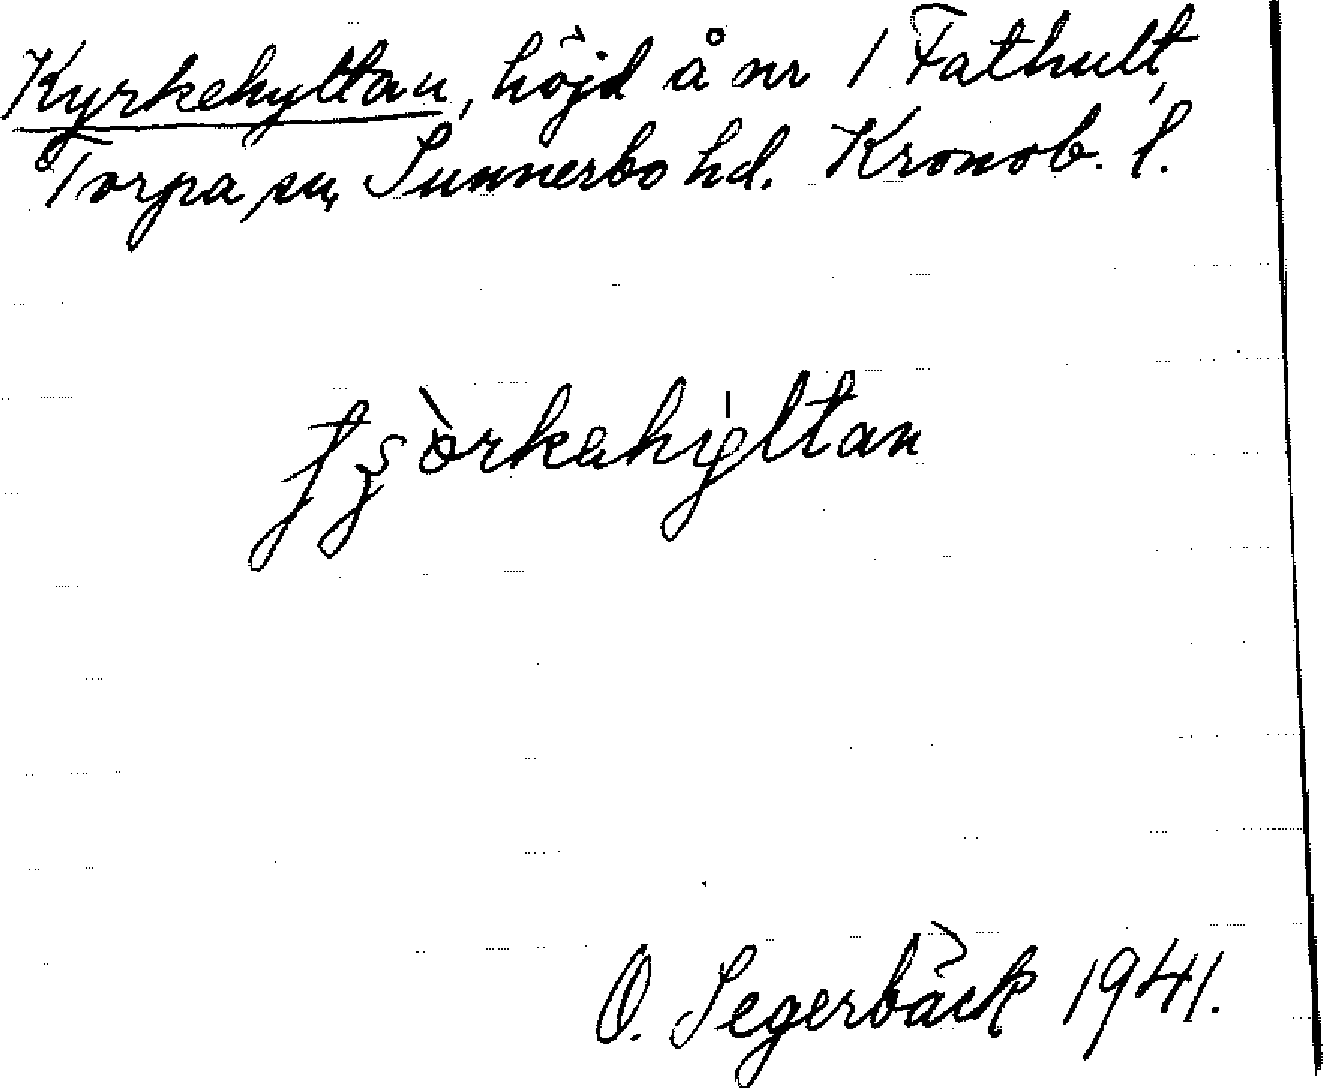 Kyrkehyltan, höjd å nr 1 Fathult,
Torpa sn, Sunnerbo hd. Kronob. l.
tʒòrkahyltan
O. Segerbäck 1941.